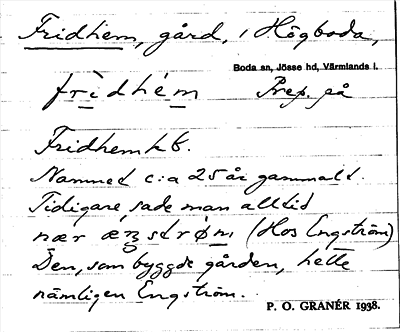 Fridhem, gård, i Högboda,
Boda sn, Jösse hd, Värmlands l.
frìdhém Prep. på
Fridhem kb.
Namnet c:a 25 år gammalt.
Tidigare sade man alltid
nær æŋström (Hos Engström)
Den, som byggde gården, hette
nämligen Engström.
P. O. GRANÉR 1938.